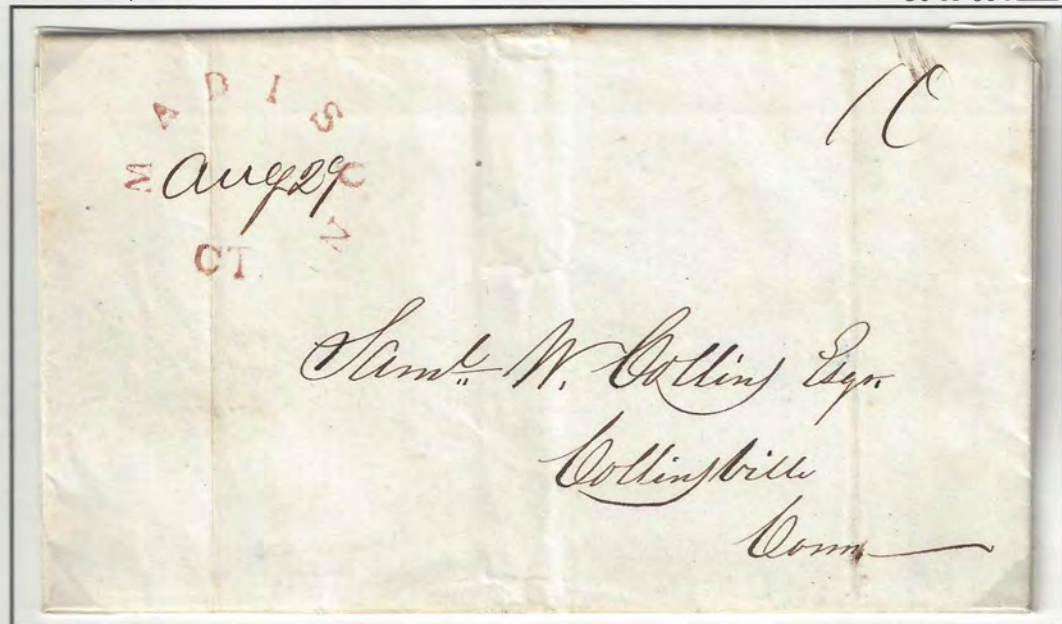 MADISON
Aug 29
CT.
10
Saml. W. Collins Esqr.
Collinsville
Conn